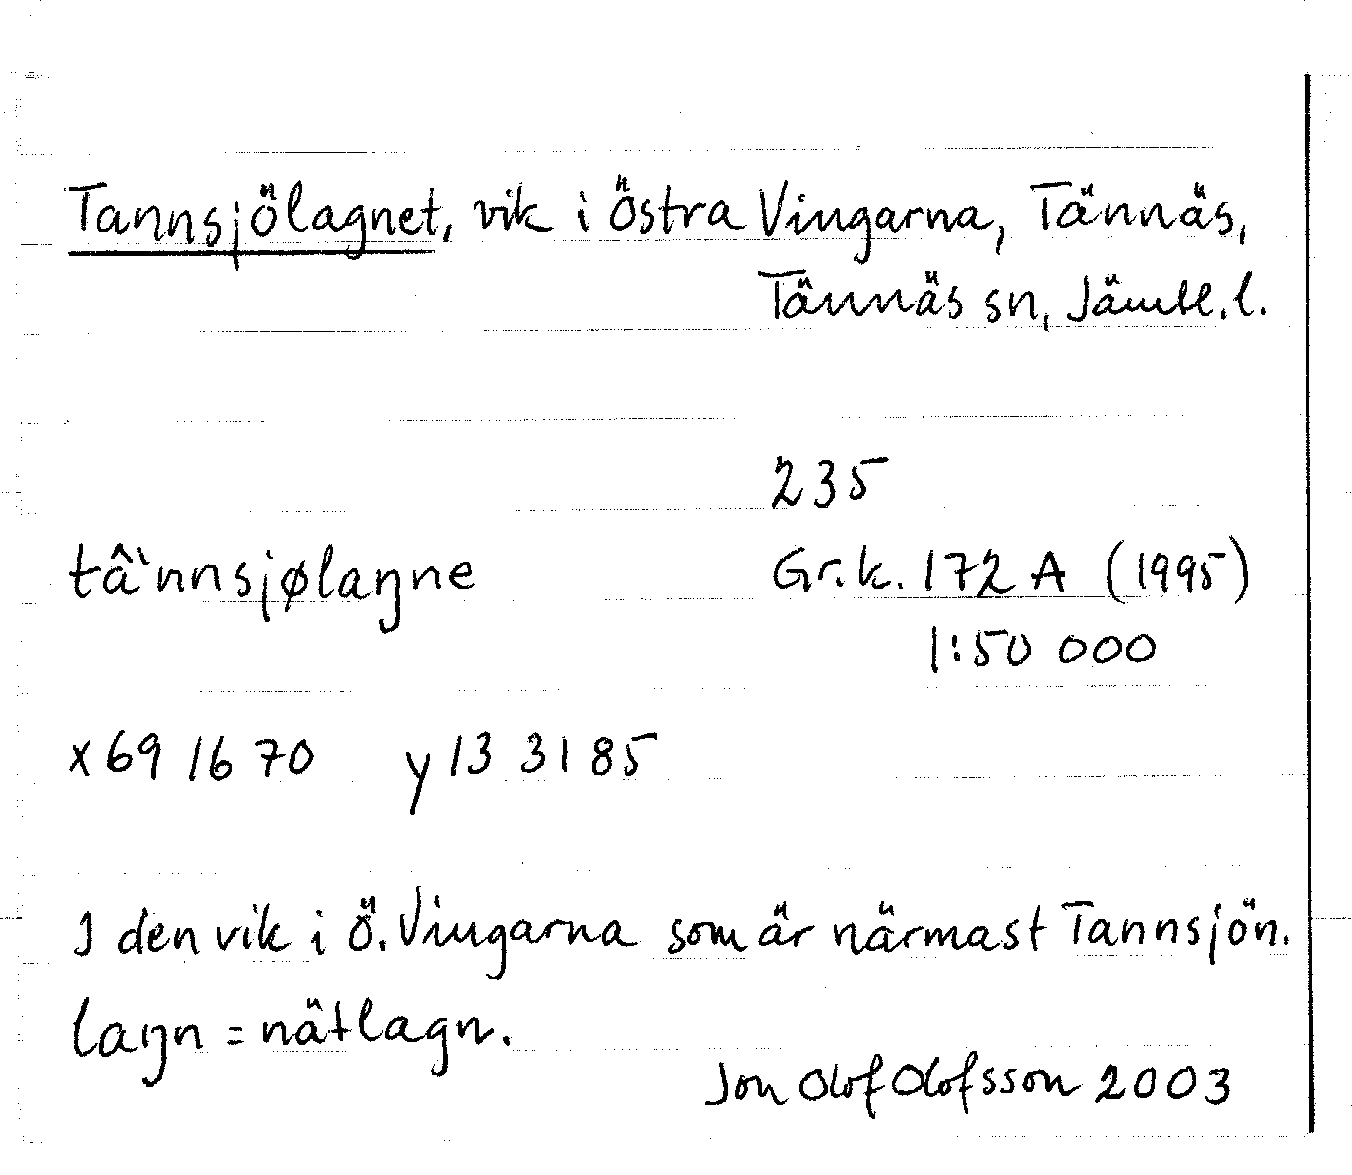 Tannsjölagnet, vik i Östra Vingarna, Tännäs,
Tännäs sn, Jämtl. l.
235
tâ`nnsjølaŋne Gr.k. 172 A (1995)
1:50 000
x 69 16 70 y 13 31 85
I den vik i Ö. Vingarna som är närmast Tannsjön.
laŋn = nätlagn.
Jon Olof Olofsson 2003